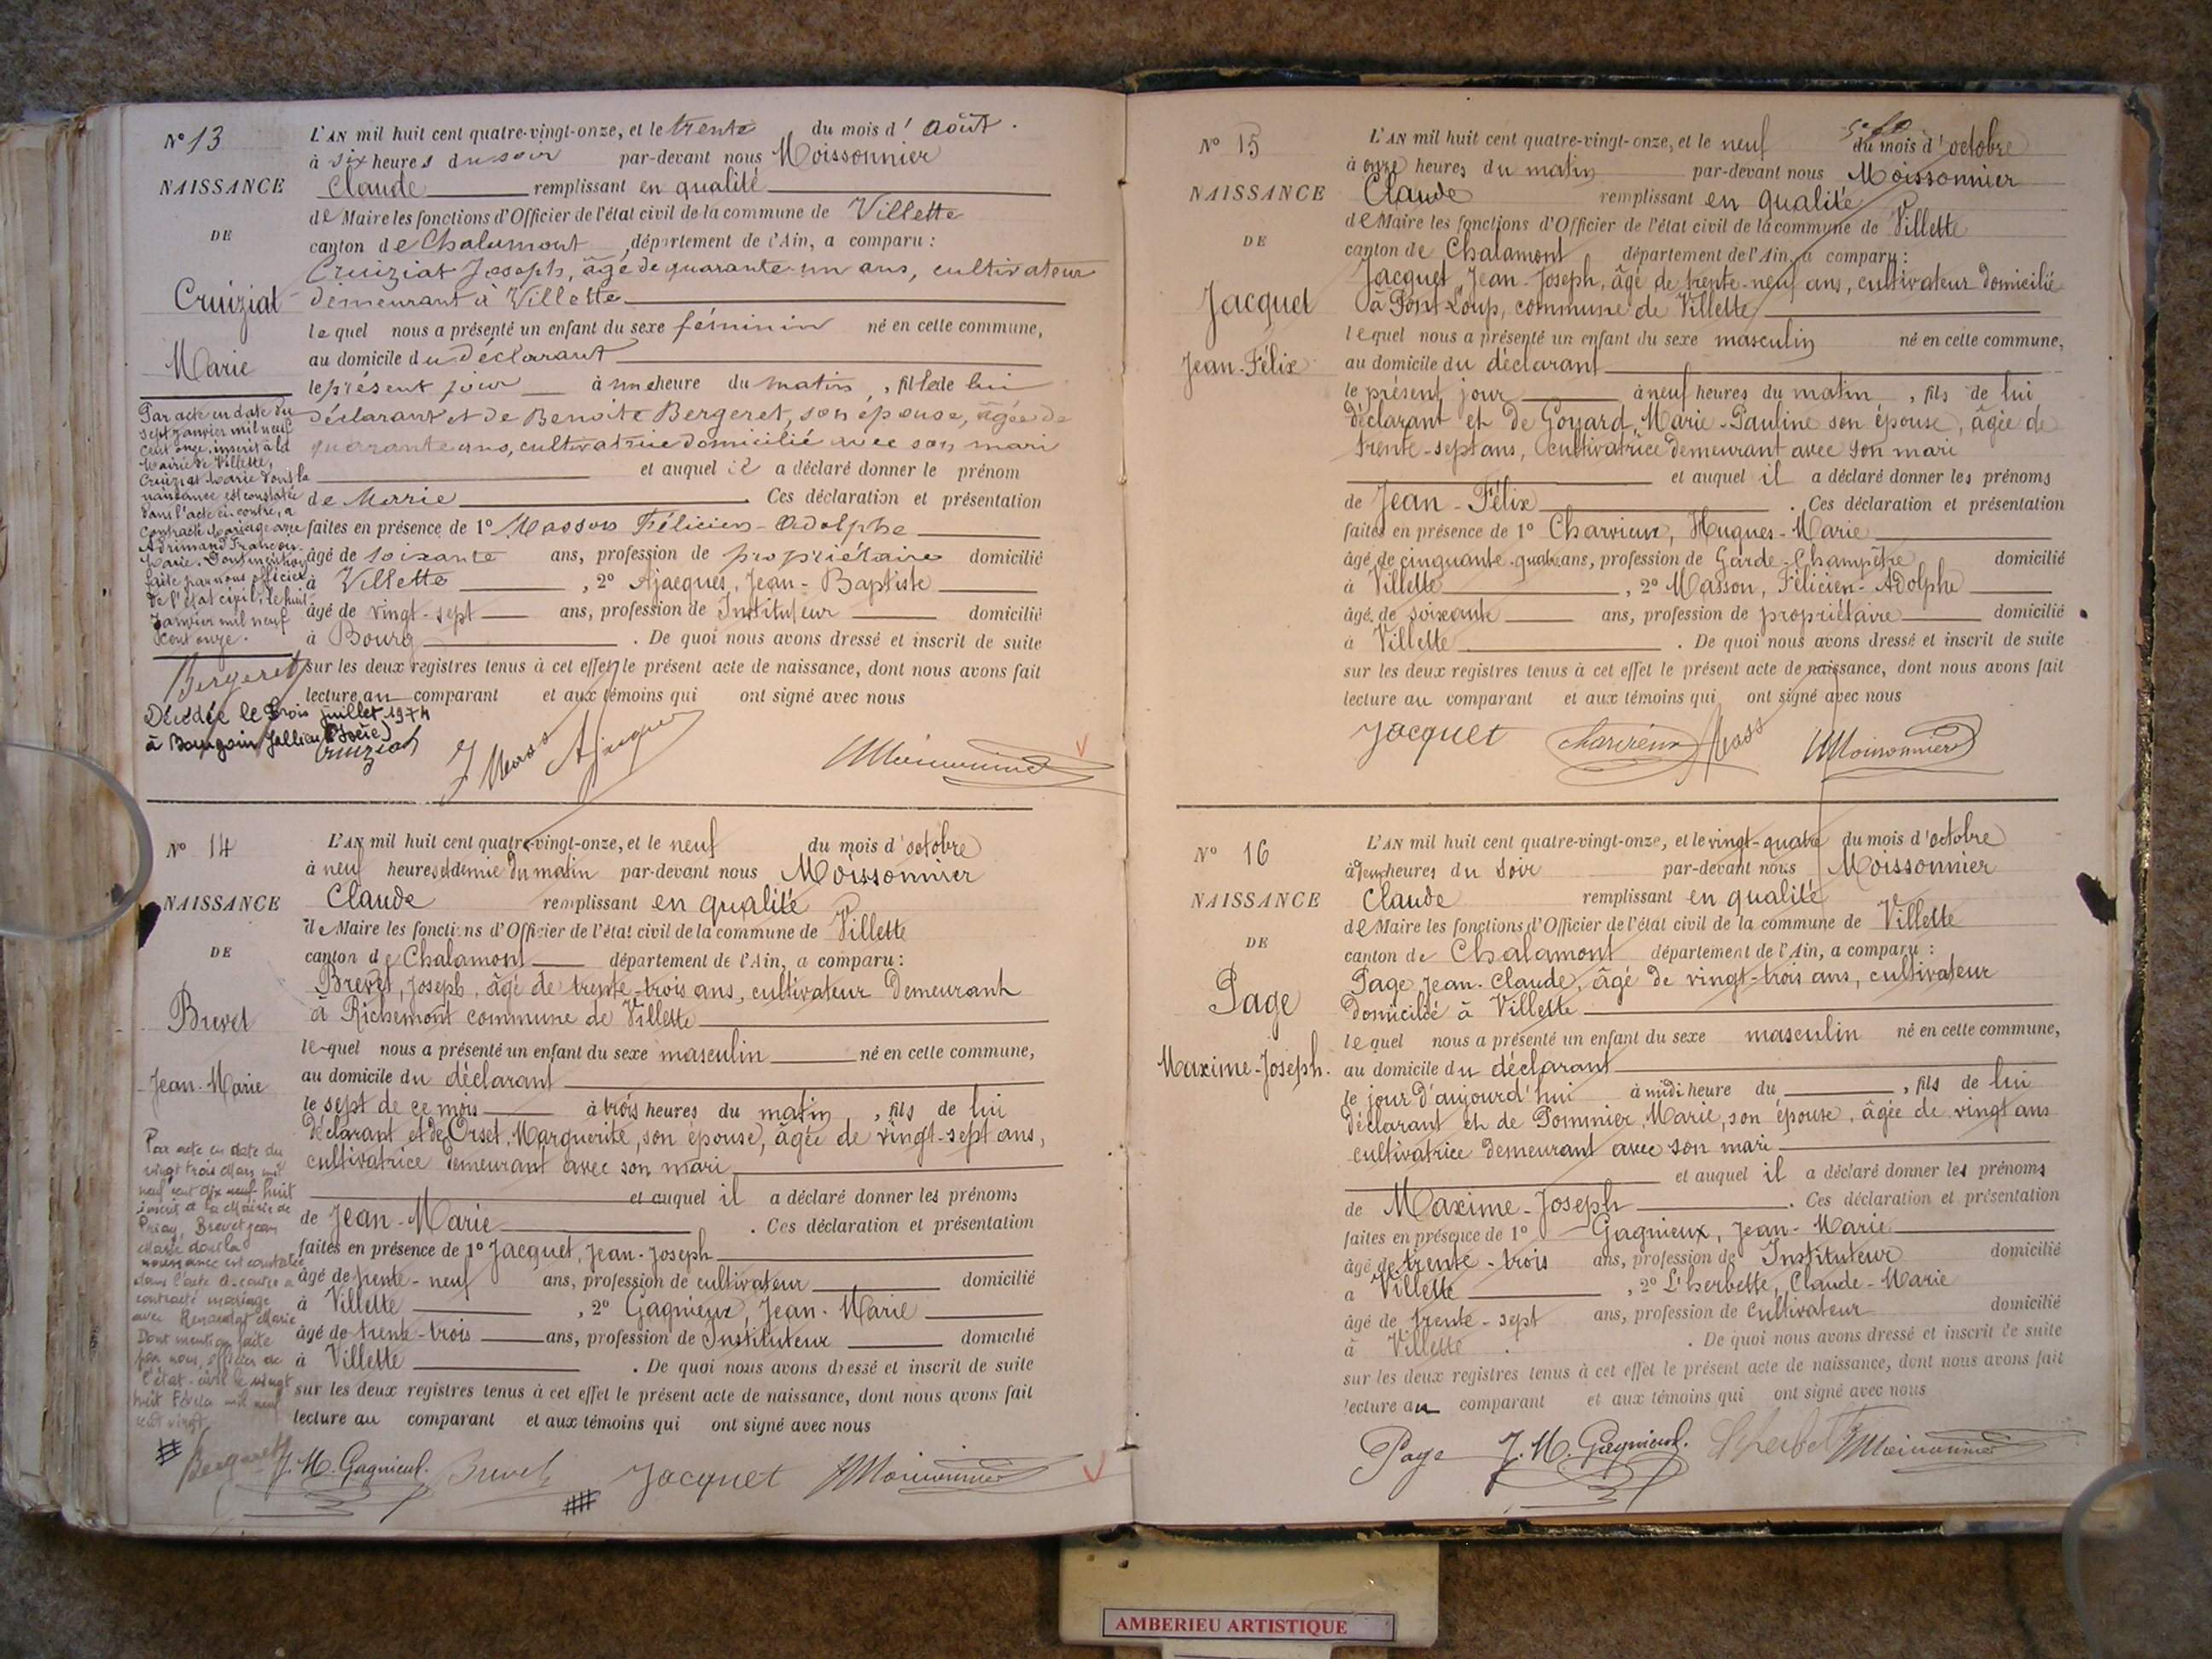 N° 13
NAISSANCE
DE
Cruiziat
Marie
Par acte en date du
sept janvier mil neuf
cent onze, inscrit à la
Mairie de Villette,
Cruiziat Marie dont la
naissance est constatée
dans l'acte ci-contre, a
contracté mariage avec
Adrimand François-
Marie. Dont mention
faite par nous officier
de l'état civil, le huit
janvier mil neuf
cent onze.
Bergeret
Décédée le trois juillet 1974
à Bourgoin Jallieu (Isère)
L'AN mil huit cent quatre-vingt-onze, et le trente du mois d'août.
à six heures du soir par-devant nous Moissonnier
Claude remplissant en qualité
de Maire les fonctions d'Officier de l'état civil de la commune de Villette
canton de Chalamont, département de l'Ain, a comparu :
Cruiziat Joseph, âgé de quarante-un ans, cultivateur
demeurant à Villette
lequel nous a présenté un enfant du sexe féminin né en cette commune,
au domicile du déclarant
le présent jour à une heure du matin, fille de lui
déclarant et de Benoite Bergeret, son épouse, âgée de
quarante ans, cultivatrice domicilié avec son mari
et auquel il a déclaré donner le prénom
de Marie. Ces déclaration et présentation
faites en présence de 1° Masson Félicien-Adolphe
âgé de soixante ans, profession de propriétaire domicilié
à Villette, 2° Ajacques, Jean-Baptiste
âgé de vingt-sept ans, profession de Instituteur domicilié
à Bourg. De quoi nous avons dressé et inscrit de suite
sur les deux registres tenus à cet effet le présent acte de naissance, dont nous avons fait
lecture au comparant et aux témoins qui ont signé avec nous
Cruiziat
N° 14
NAISSANCE
DE
Brevet
Jean-Marie
Par acte en date du
vingt trois Mars mil
neuf cent dix neuf huit
inscrit à la Mairie de
Priay, Brevet Jean
Marie dont la
naissance est constatée
dans l'acte ci-contre a
contracté mariage
avec Marie
Dont mention faite
par nous, officier de
l'état-civil le vingt
huit Février mil neuf
cent vingt.
Bergeret
L'AN mil huit cent quatre-vingt-onze, et le neuf du mois d'octobre
à neuf heures et demie du matin par-devant nous Moissonnier
Claude remplissant en qualité
de Maire les fonctions d'Officier de l'état civil de la commune de Villette
canton de Chalamont département de l'Ain, a comparu :
Brevet, Joseph, âgé de trente-trois ans, cultivateur demeurant
à Richemont commune de Villette
lequel nous a présenté un enfant du sexe masculin né en cette commune,
au domicile du déclarant
le sept de ce mois à trois heures du matin, fils de lui
déclarant et de Orset, Marguerite, son épouse, âgée de vingt-sept ans,
cultivatrice demeurant avec son mari
et auquel il a déclaré donner les prénoms
de Jean-Marie. Ces déclaration et présentation
faites en présence de 1° Jacquet, Jean-Joseph
âgé de trente-neuf ans, profession de cultivateur domicilié
à Villette, 2° Gagnieux, Jean-Marie
âgé de trente-trois ans, profession de Instituteur domicilié
à Villette. De quoi nous avons dressé et inscrit de suite
sur les deux registres tenus à cet effet le présent acte de naissance, dont nous avons fait
lecture au comparant et aux témoins qui ont signé avec nous
J. M. Gagnieux. Brevet Jacquet Moissonnier
N° 15
NAISSANCE
DE
Jacquet
Jean-Félix
L'AN mil huit cent quatre-vingt-onze, et le neuf du mois d'octobre
à onze heures du matin par-devant nous Moissonnier
Claude remplissant en qualité
de Maire les fonctions d'Officier de l'état civil de la commune de Villette
canton de Chalamont département de l'Ain, a comparu :
Jacquet, Jean-Joseph, âgé de trente-neuf ans, cultivateur domicilié
à Pont-Loup, commune de Villette
lequel nous a présenté un enfant du sexe masculin né en cette commune,
au domicile du déclarant
le présent jour à neuf heures du matin, fils de lui
déclarant et de Goyard, Marie-Pauline son épouse, âgée de
trente-sept ans, cultivatrice demeurant avec son mari
et auquel il a déclaré donner les prénoms
de Jean-Félix. Ces déclaration et présentation
faites en présence de 1° Charvieux, Hugues-Marie
âgé de cinquante-quatre ans, profession de Garde-Champêtre domicilié
à Villette, 2° Masson, Félicien-Adolphe
âgé de soixante ans, profession de propriétaire domicilié
à Villette. De quoi nous avons dressé et inscrit de suite
sur les deux registres tenus à cet effet le présent acte de naissance, dont nous avons fait
lecture au comparant et aux témoins qui ont signé avec nous
Jacquet Charvieux Masson Moissonnier
N° 16
NAISSANCE
DE
Page
Maxime-Joseph.
L'AN mil huit cent quatre-vingt-onze, et le vingt-quatre du mois d'octobre
à deux heures du soir par-devant nous Moissonnier
Claude remplissant en qualité
de Maire les fonctions d'Officier de l'état civil de la commune de Villette
canton de Chalamont département de l'Ain, a comparu :
Page Jean-Claude, âgé de vingt-trois ans, cultivateur
domicilié à Villette
lequel nous a présenté un enfant du sexe masculin né en cette commune,
au domicile du déclarant
le jour d'aujourd'hui à midi heure du, fils de lui
déclarant et de Pommier, Marie, son épouse, âgée de vingt ans
cultivatrice demeurant avec son mari
et auquel il a déclaré donner les prénoms
de Maxime-Joseph. Ces déclaration et présentation
faites en présence de 1° Gagnieux, Jean-Marie
âgé de trente-trois ans, profession de Instituteur domicilié
à Villette, 2° L'herbette, Claude-Marie
âgé de trente-sept ans, profession de Cultivateur domicilié
à Villette. De quoi nous avons dressé et inscrit de suite
sur les deux registres tenus à cet effet le présent acte de naissance, dont nous avons fait
lecture au comparant et aux témoins qui ont signé avec nous
Page J. M. Gagnieux. Lherbette Moissonnier
AMBERIEU ARTISTIQUE